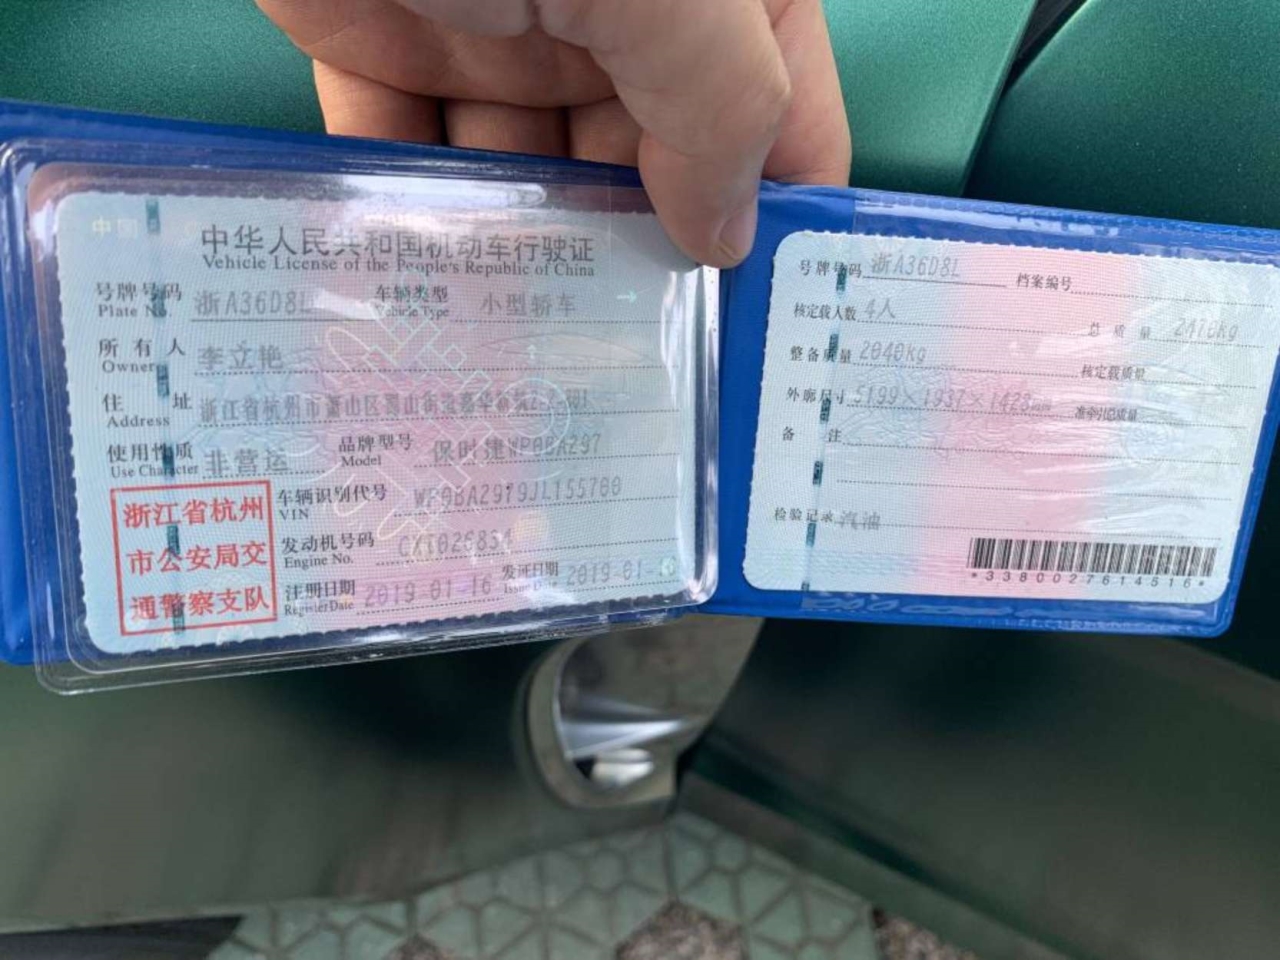 中华人民共和国机动车行驶证
Vehicle License of the People's Republic of China
号牌号码 浙A36D8L 车辆类型 小型轿车
Plate No. Vehicle Type
所有人 李立艳
Owner
住址 浙江省杭州市萧山区蜀山街道嘉华
Address
使用性质 非营运 品牌型号 保时捷WP0BA297
Use Character Model
浙江省杭州
市公安局交
通警察支队
车辆识别代号 WP0BA2979JL155700
VIN
发动机号码 CXT026854
Engine No.
注册日期 2019-01-16 发证日期 2019-01-
Register Date Issue Date
号牌号码 浙A36D8L 档案编号
核定载人数 4人 总质量 2470kg
整备质量 2040kg 核定载质量
外廓尺寸 5199×1937×1423mm 准牵引总质量
备注
检验记录 汽油
*3380027614516*